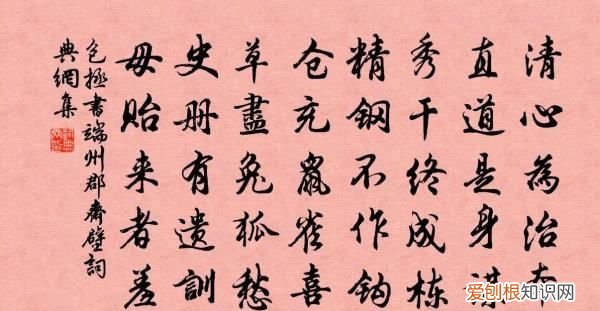 清心為治本
直道是身謀
秀干终成棟
精鋼不作鈎
仓充鼠雀喜
草盡兔狐愁
史册有遺訓
毋貽来者羞
包拯書端州郡齋壁詞
典網集
爱刨根知识网